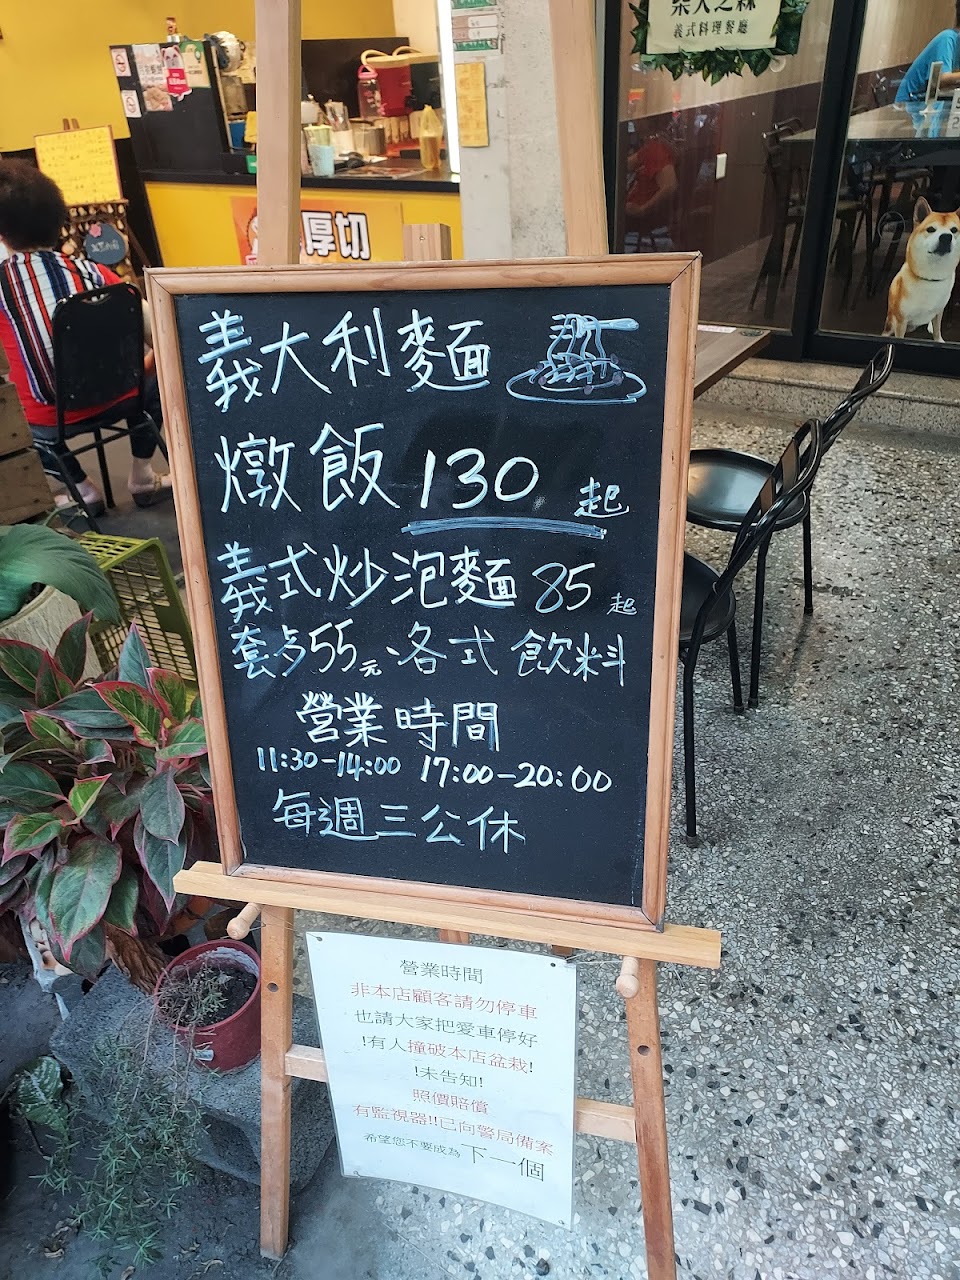 柴犬之森
義式料理餐廳
厚切
義大利麵
燉飯 130 起
義式炒泡麵 85 起
套点55元、各式飲料
營業時間
11:30-14:00 17:00-20:00
每週三公休
營業時間
非本店顧客請勿停車
也請大家把愛車停好
!有人撞破本店盆栽!
!未告知!
照價賠償
有監視器!!已向警局備案
希望您不要成為下一個